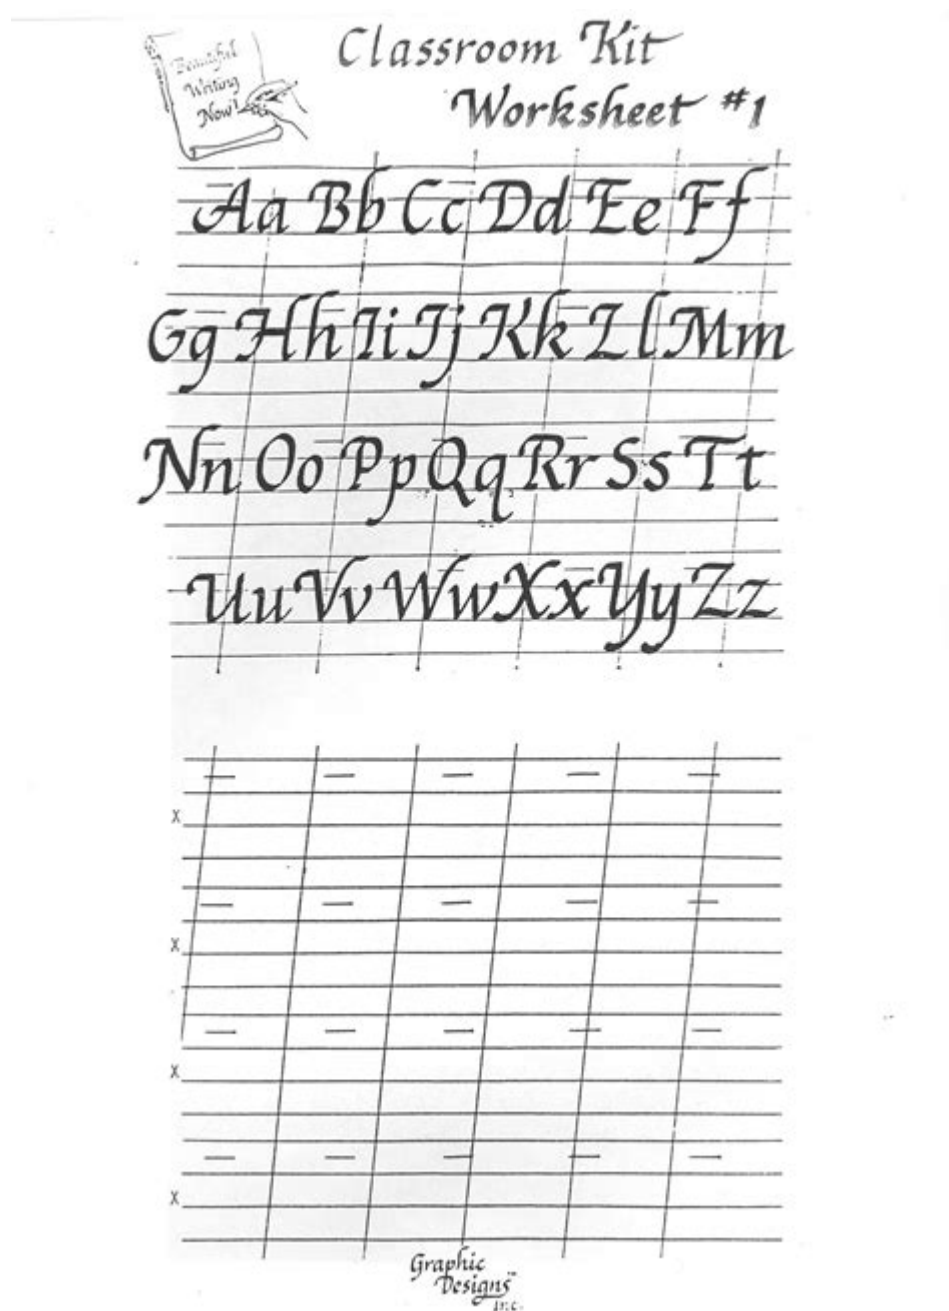 Beautiful
Writing
Now!
Classroom Kit
Worksheet #1
Aa Bb Cc Dd Ee Ff
Gg Hh Ii Jj Kk Ll Mm
Nn Oo Pp Qq Rr Ss Tt
Uu Vv Ww Xx Yy Zz
x
x
x
x
Graphic
Designs™
Inc.